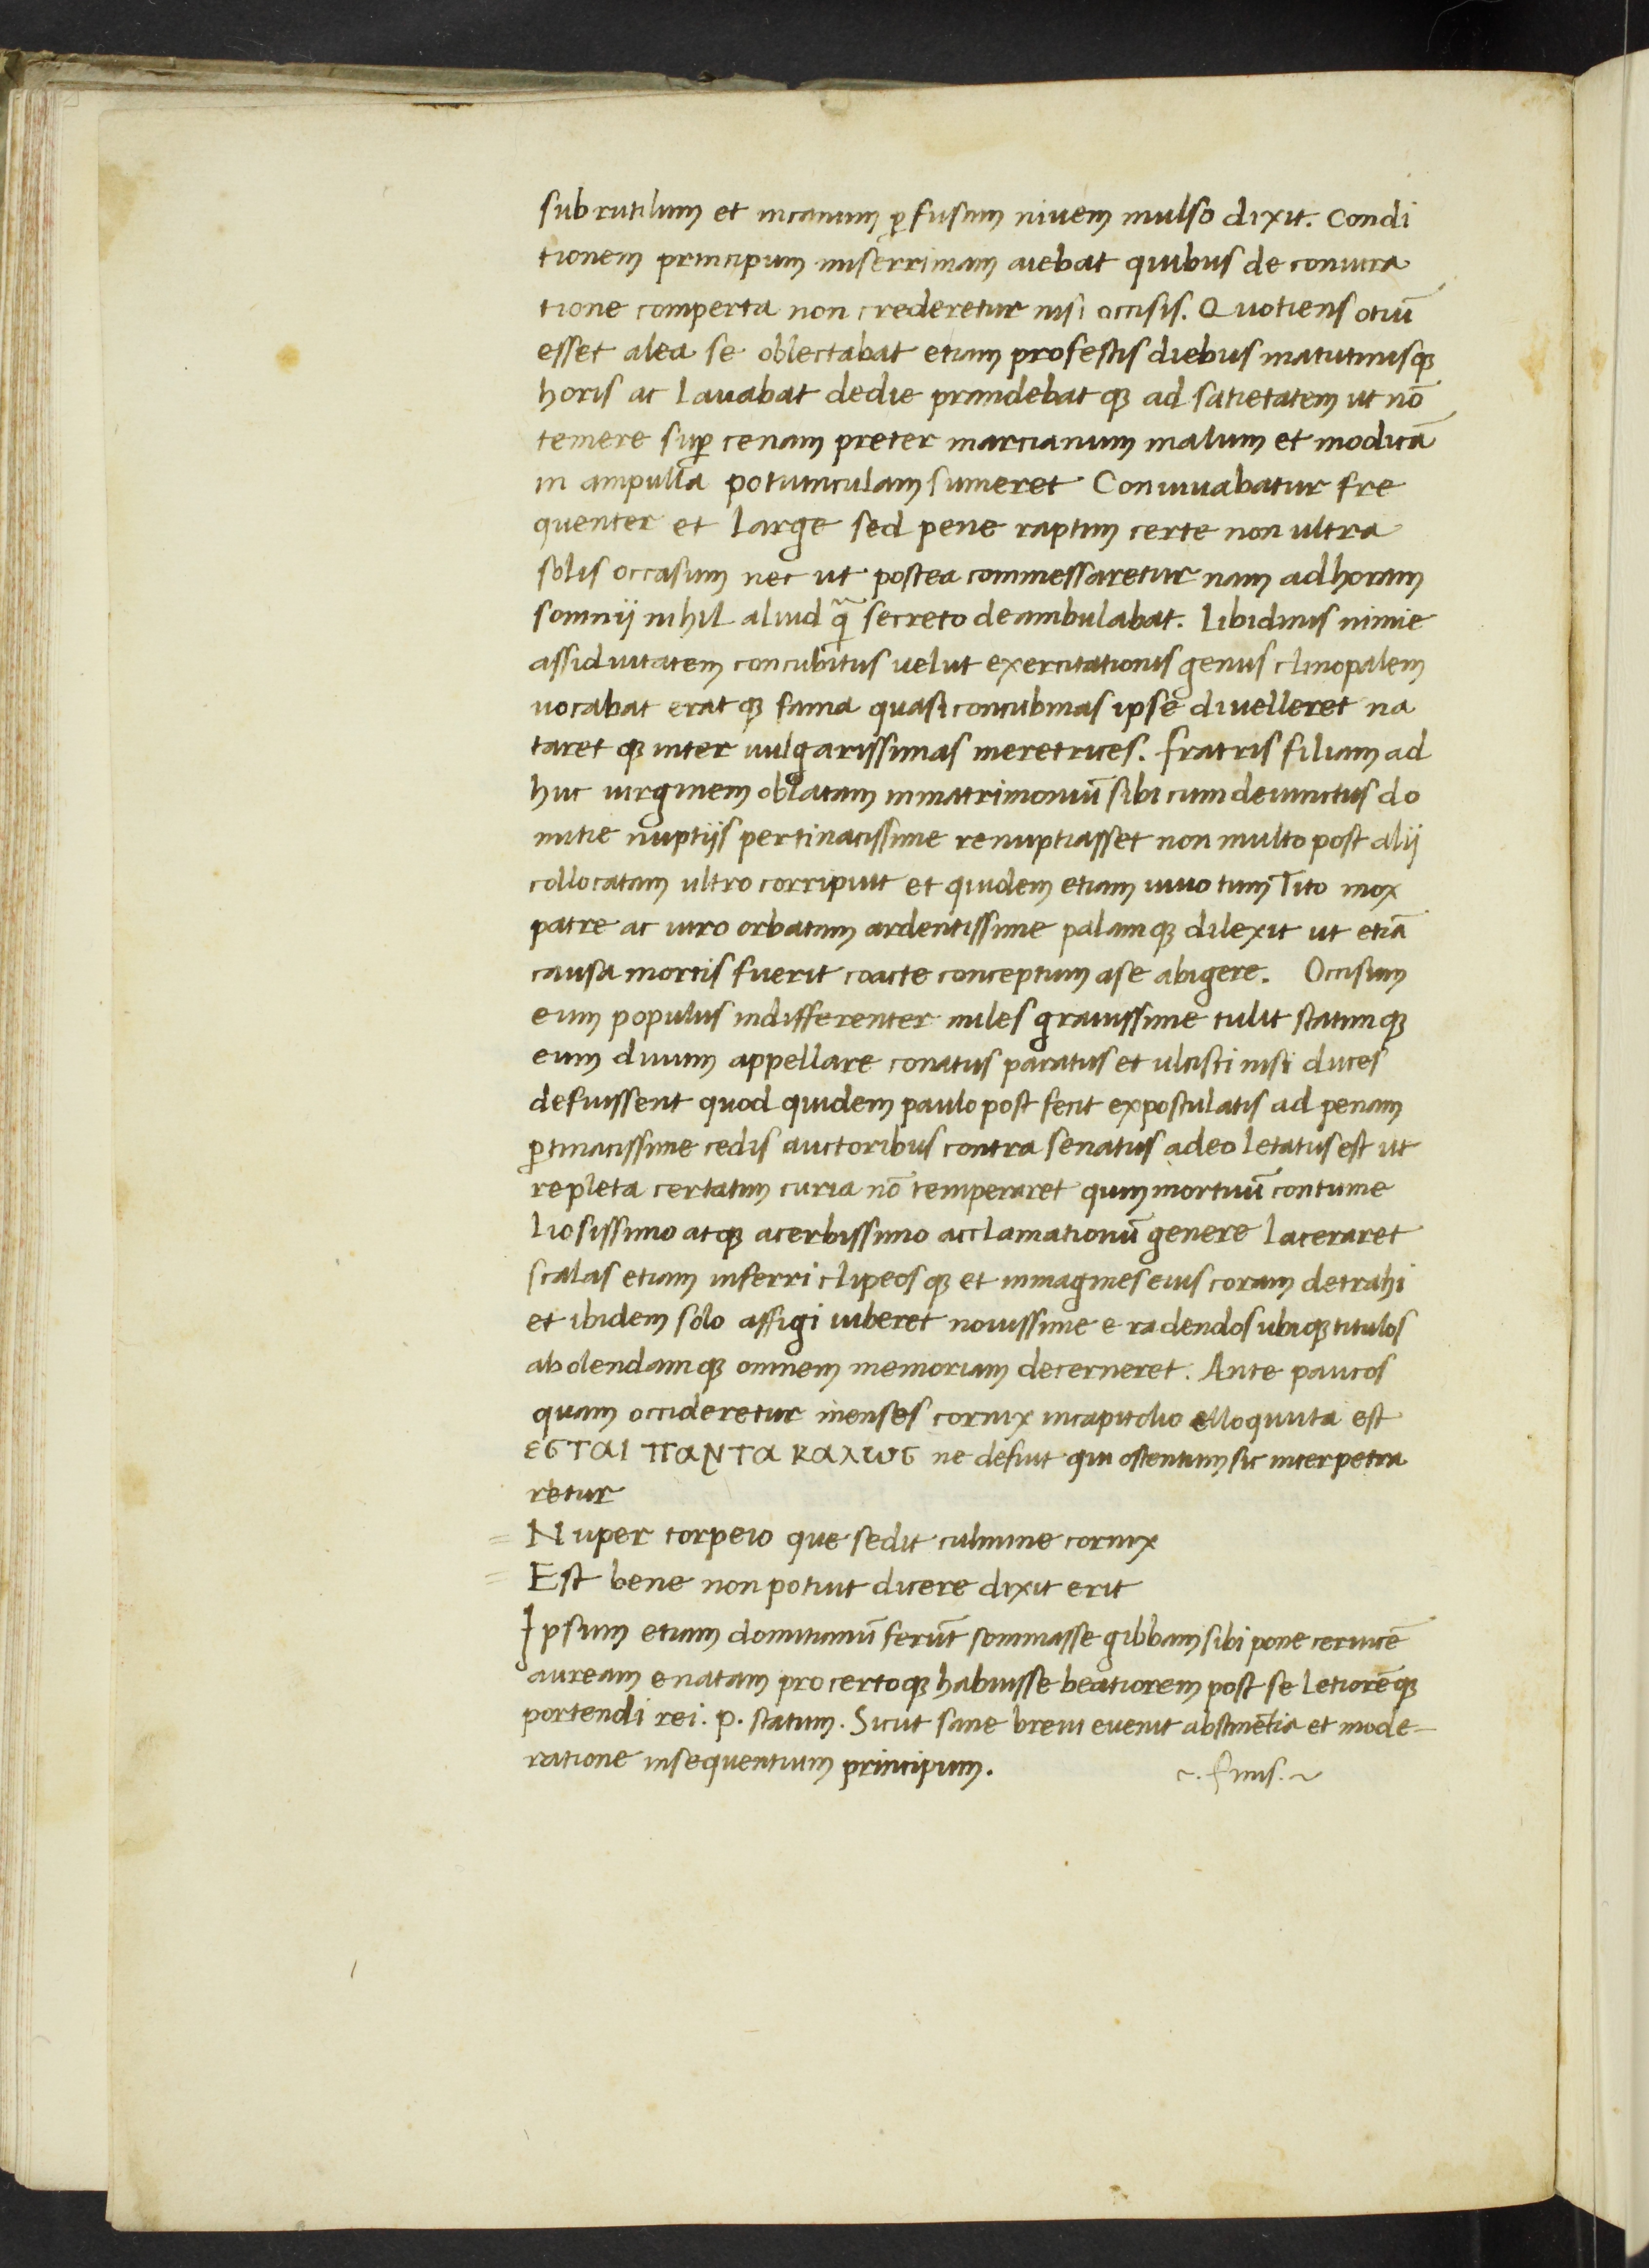 subrutilum et incanum ꝑfusam niuem mulso dixit. Condi
tionem principum miserrimam aiebat quibus de coniura
tione comperta non crederetur nisi occisis. Quotiens otiū
esset alea se oblectabat etiam profestis diebus matutinisqꝫ
horis ac lauabat dedie prandebatqꝫ ad satietatem ut nō
temere suꝑ cenam preter marcianum malum et modicā
in ampulla potiunculam sumeret Conuiuabatur fre
quenter et large sed pene raptim certe non ultra
solis occasum nec ut postea commessaretur nam ad horam
somnij nihil aliud q̃ secreto deambulabat. Libidinis nimie
assiduitatem concubitus uelut exercitationis genus clinopalem
uocabat eratqꝫ fama quasi concubinas ipse diuelleret na
taretqꝫ inter uulgarissimas meretrices. fratris filiam ad
huc uirginem oblatam in matrimoniū sibi cum deuinctus do
mitie nuptijs pertinacissime renuptiasset non multo post alij
collocatam ultro corripuit et quidem etiam uiuo tum Tito mox
patre ac uiro orbatam ardentissime palamqꝫ dilexit ut etiā
causa mortis fuerit coacte conceptum ase abigere. Occisum
eum populus indifferenter miles grauissime tulit statimqꝫ
eum diuum appellare conatus paratus et ulcisci nisi duces
defuissent quod quidem paulo post fecit expostulatis ad penam
ꝑtinacissime cedis auctoribus contra senatus adeo letatus est ut
repleta certatim curia nō temperaret quin mortuū contume
liosissimo atqꝫ acerbissimo acclamationū genere laceraret
scalas etiam inferri clipeosqꝫ et inmagines eius coram detrahi
et ibidem solo affigi iuberet nouissime eradendos ubiqꝫ titulos
abolendamqꝫ omnem memoriam decerneret. Ante paucos
quam occideretur menses cornix incapitolio elloquuta est
ΕϹΤΑΙ ΠΑΝΤΑ ΚΑΛωϹ ne defuit qui ostentum sic interpetra
retur
Nuper torpeio que sedit culmine cornix
Est bene non potuit dicere dixit erit
Ipsum etiam domitianū ferūt somniasse gibbam sibi pone ceruicē
auream enatam pro certoqꝫ habuisse beatiorem post se letiorēqꝫ
portendi rei. p. statum. Sicut sane breui euenit abstinētia et mode-
ratione insequentium principum.
~. finis. ~